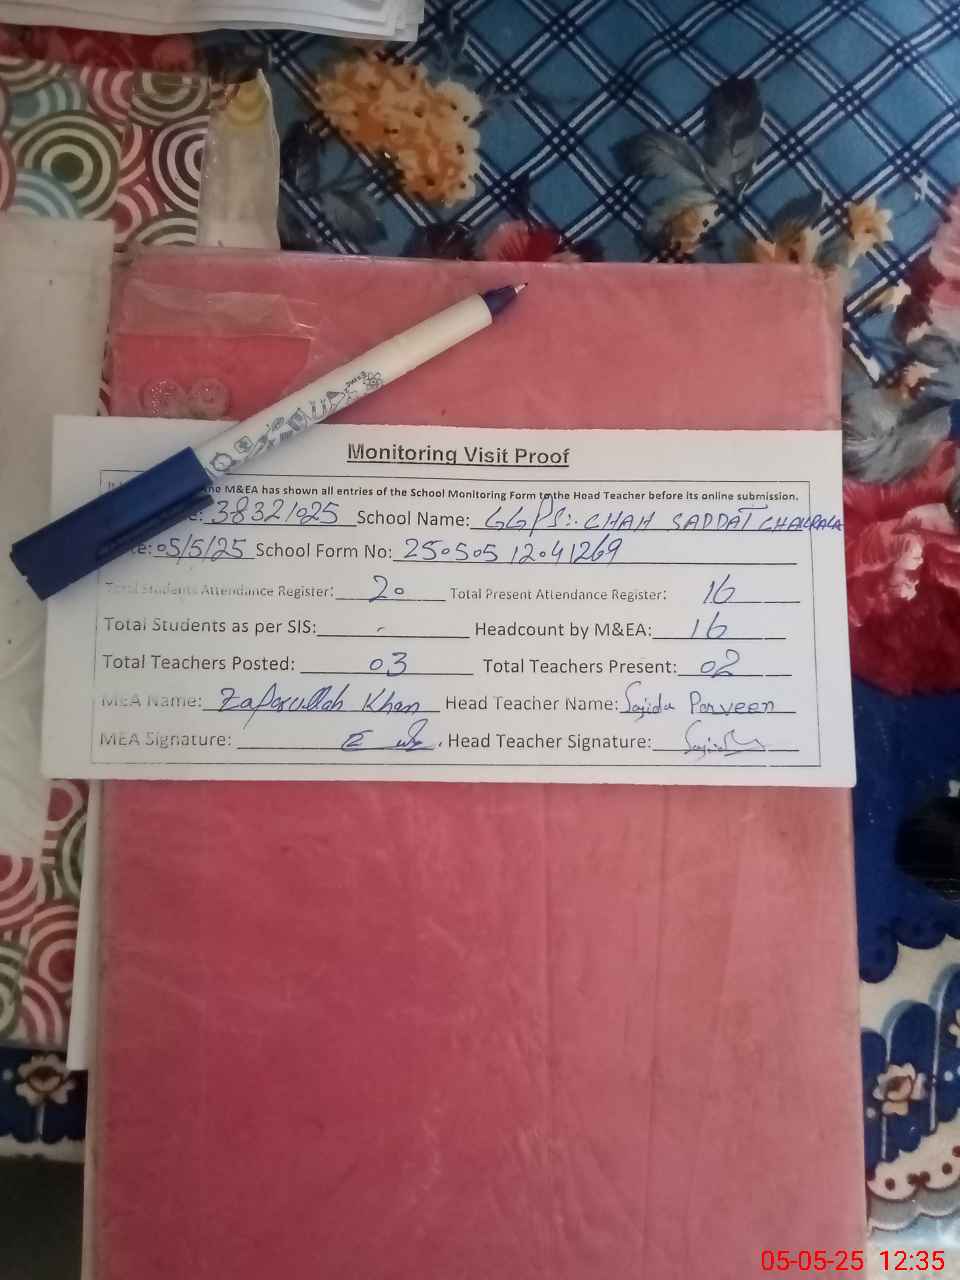 Monitoring Visit Proof
the M&EA has shown all entries of the School Monitoring Form to the Head Teacher before its online submission.
38321025 School Name: GGPS:- CHAH SADDAT CHAKRALA
05/5/25 School Form No: 2505051204 1269
Total Students Attendance Register: 20 Total Present Attendance Register: 16
Total Students as per SIS: - Headcount by M&EA: 16
Total Teachers Posted: 03 Total Teachers Present: 02
MEA Name: Zafarullah Khan Head Teacher Name: Sajida Parveen
MEA Signature: Head Teacher Signature:
05-05-25 12:35